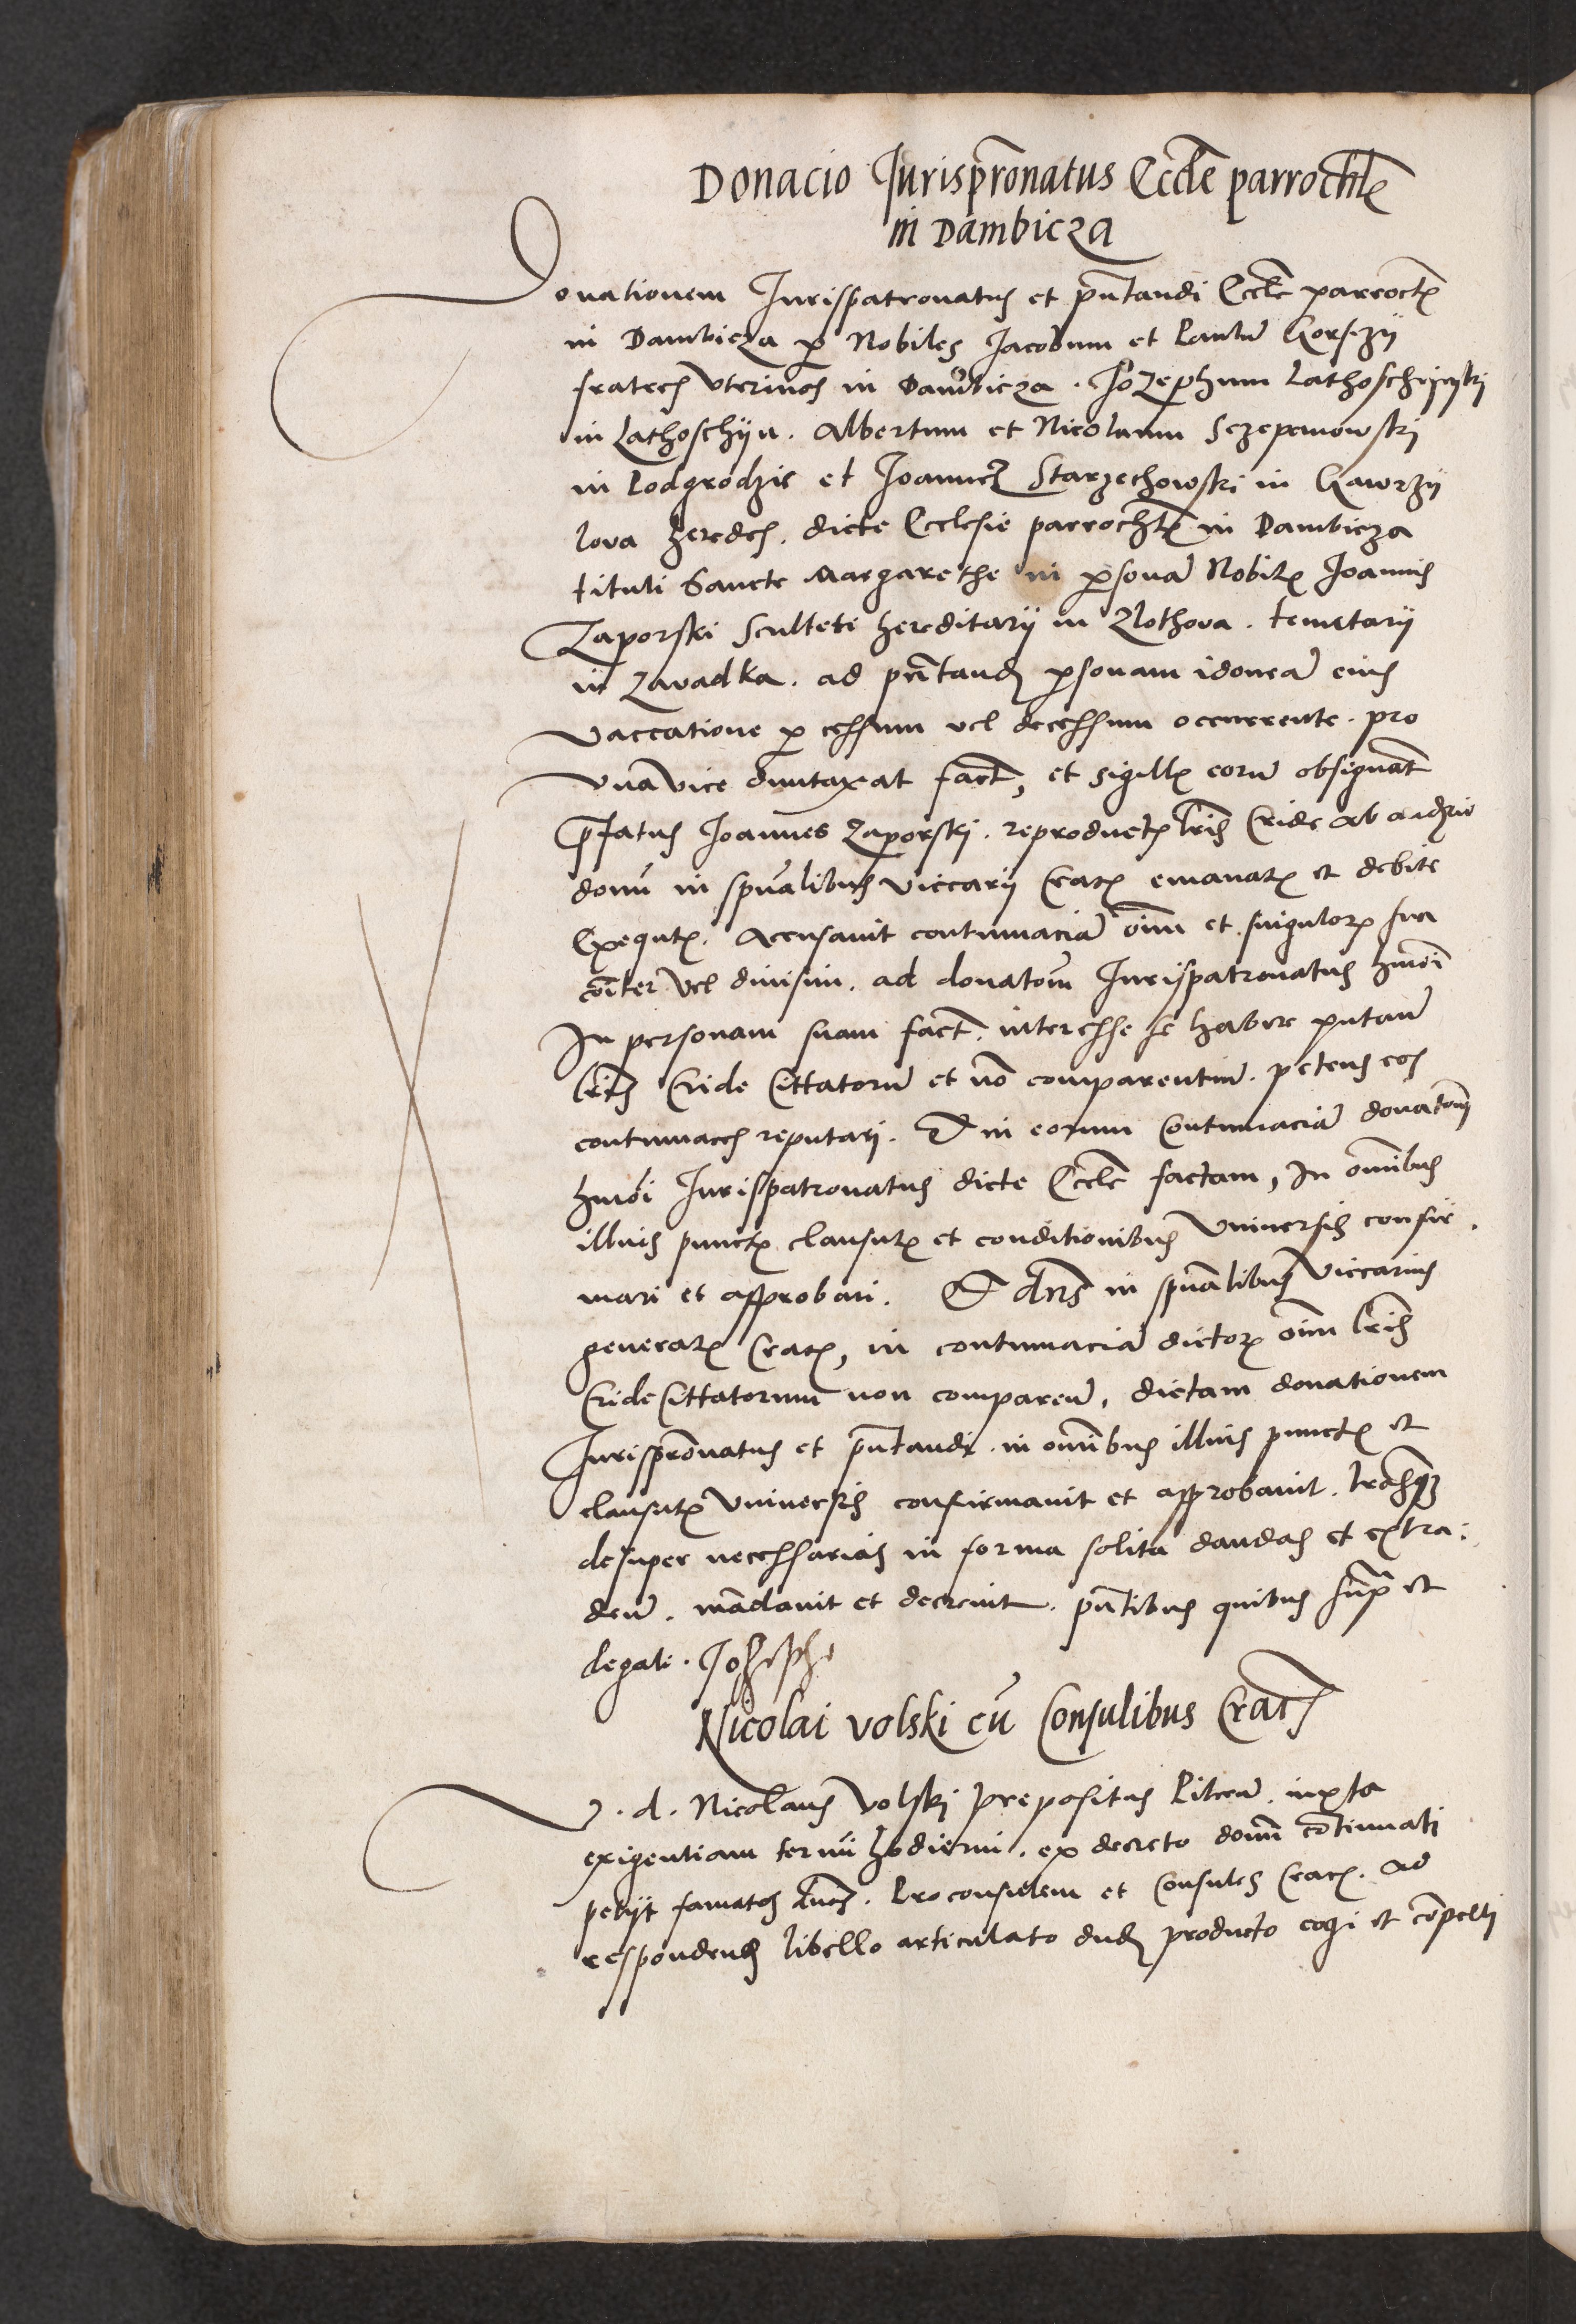 Donacio Jurisprōnatus Eccl̄e parrochl̄
in Dambicza
Donationem Jurispatronatus et pn̄tandi Eccl̄e parroch̄
in Dambicza p Nobiles Jacobum et Paulū Gorsczij
fratres Vterinos in Dambicza . Jozephum Lathoschijnski
in Lathoschijn . Albertum et Nicolaum Sczepanowski
in Podgrodzie et Joannē Starzechowski in Gawrzij
lova heredes . dicte Ecclesie parroch̄l in Dambicza
tituli Sancte Margarethe in p̱sonā Nobil̄ Joannis
Zaporski Sculteti hereditarij in Zlothova . tenutarij
in Zavadka . ad pn̄tand̄ p̱sonam idoneā eius
Vaccatione p̱ cessum vel decessum occurrente . pro
Vna vice duntaxat fact̄, et sigill̄ eorū obsignat̄
Prefatus Joannes Zaporski . reproduct̄ lr̄is Cride ab
donū in spūalibus viccarij Crac̄ emanat̄ et debite
Exequt̄ . Accusauit contumaciā oīm et singulor̄ sua
cōiter Vel diuisim . ad donatōm Jurispatronatus hmōi
In personam suam fact̄ . interesse se habere putan̄
lr̄is Cride Cittatorū et nō comparentium . petens eos
contumaces reputari . Et in eorum Contumaciā donatōm
hmōi Jurispatronatus dicte Eccl̄e factam, In omībus
illius punct̄ clausul̄ et conditionibus Vniuersis confir
mari et approbari . Et dn̄s in spūalibus Viccarius
general̄ Crac̄, in contumaciā dictor̄ oīm lr̄is
Cride Cittatorum non comparen̄ , dictam donationem
Jurisprōnatus et pn̄tandi . in omībus illius punct̄ et
clausul̄ Vniuersis confirmauit et approbauit . lr̄asq3
desuper necessarias in forma solita dandas et extra
den̄ . mādauit et decreuit . pn̄tibus quibus sup̄ et
legati . Joseph
Nicolai Volski cū Consulibus Crac̄
V . d . Nicolaus Volski prepositus Pilcen̄ . iuxta
exigentiam termi hodierni . ex decreto domī cōtinuati
petijt famatos dnos . Proconsulem et Consules Crac̄ . ad
respondend̄ libello articulato dud̄ producto cogi et cōpelli